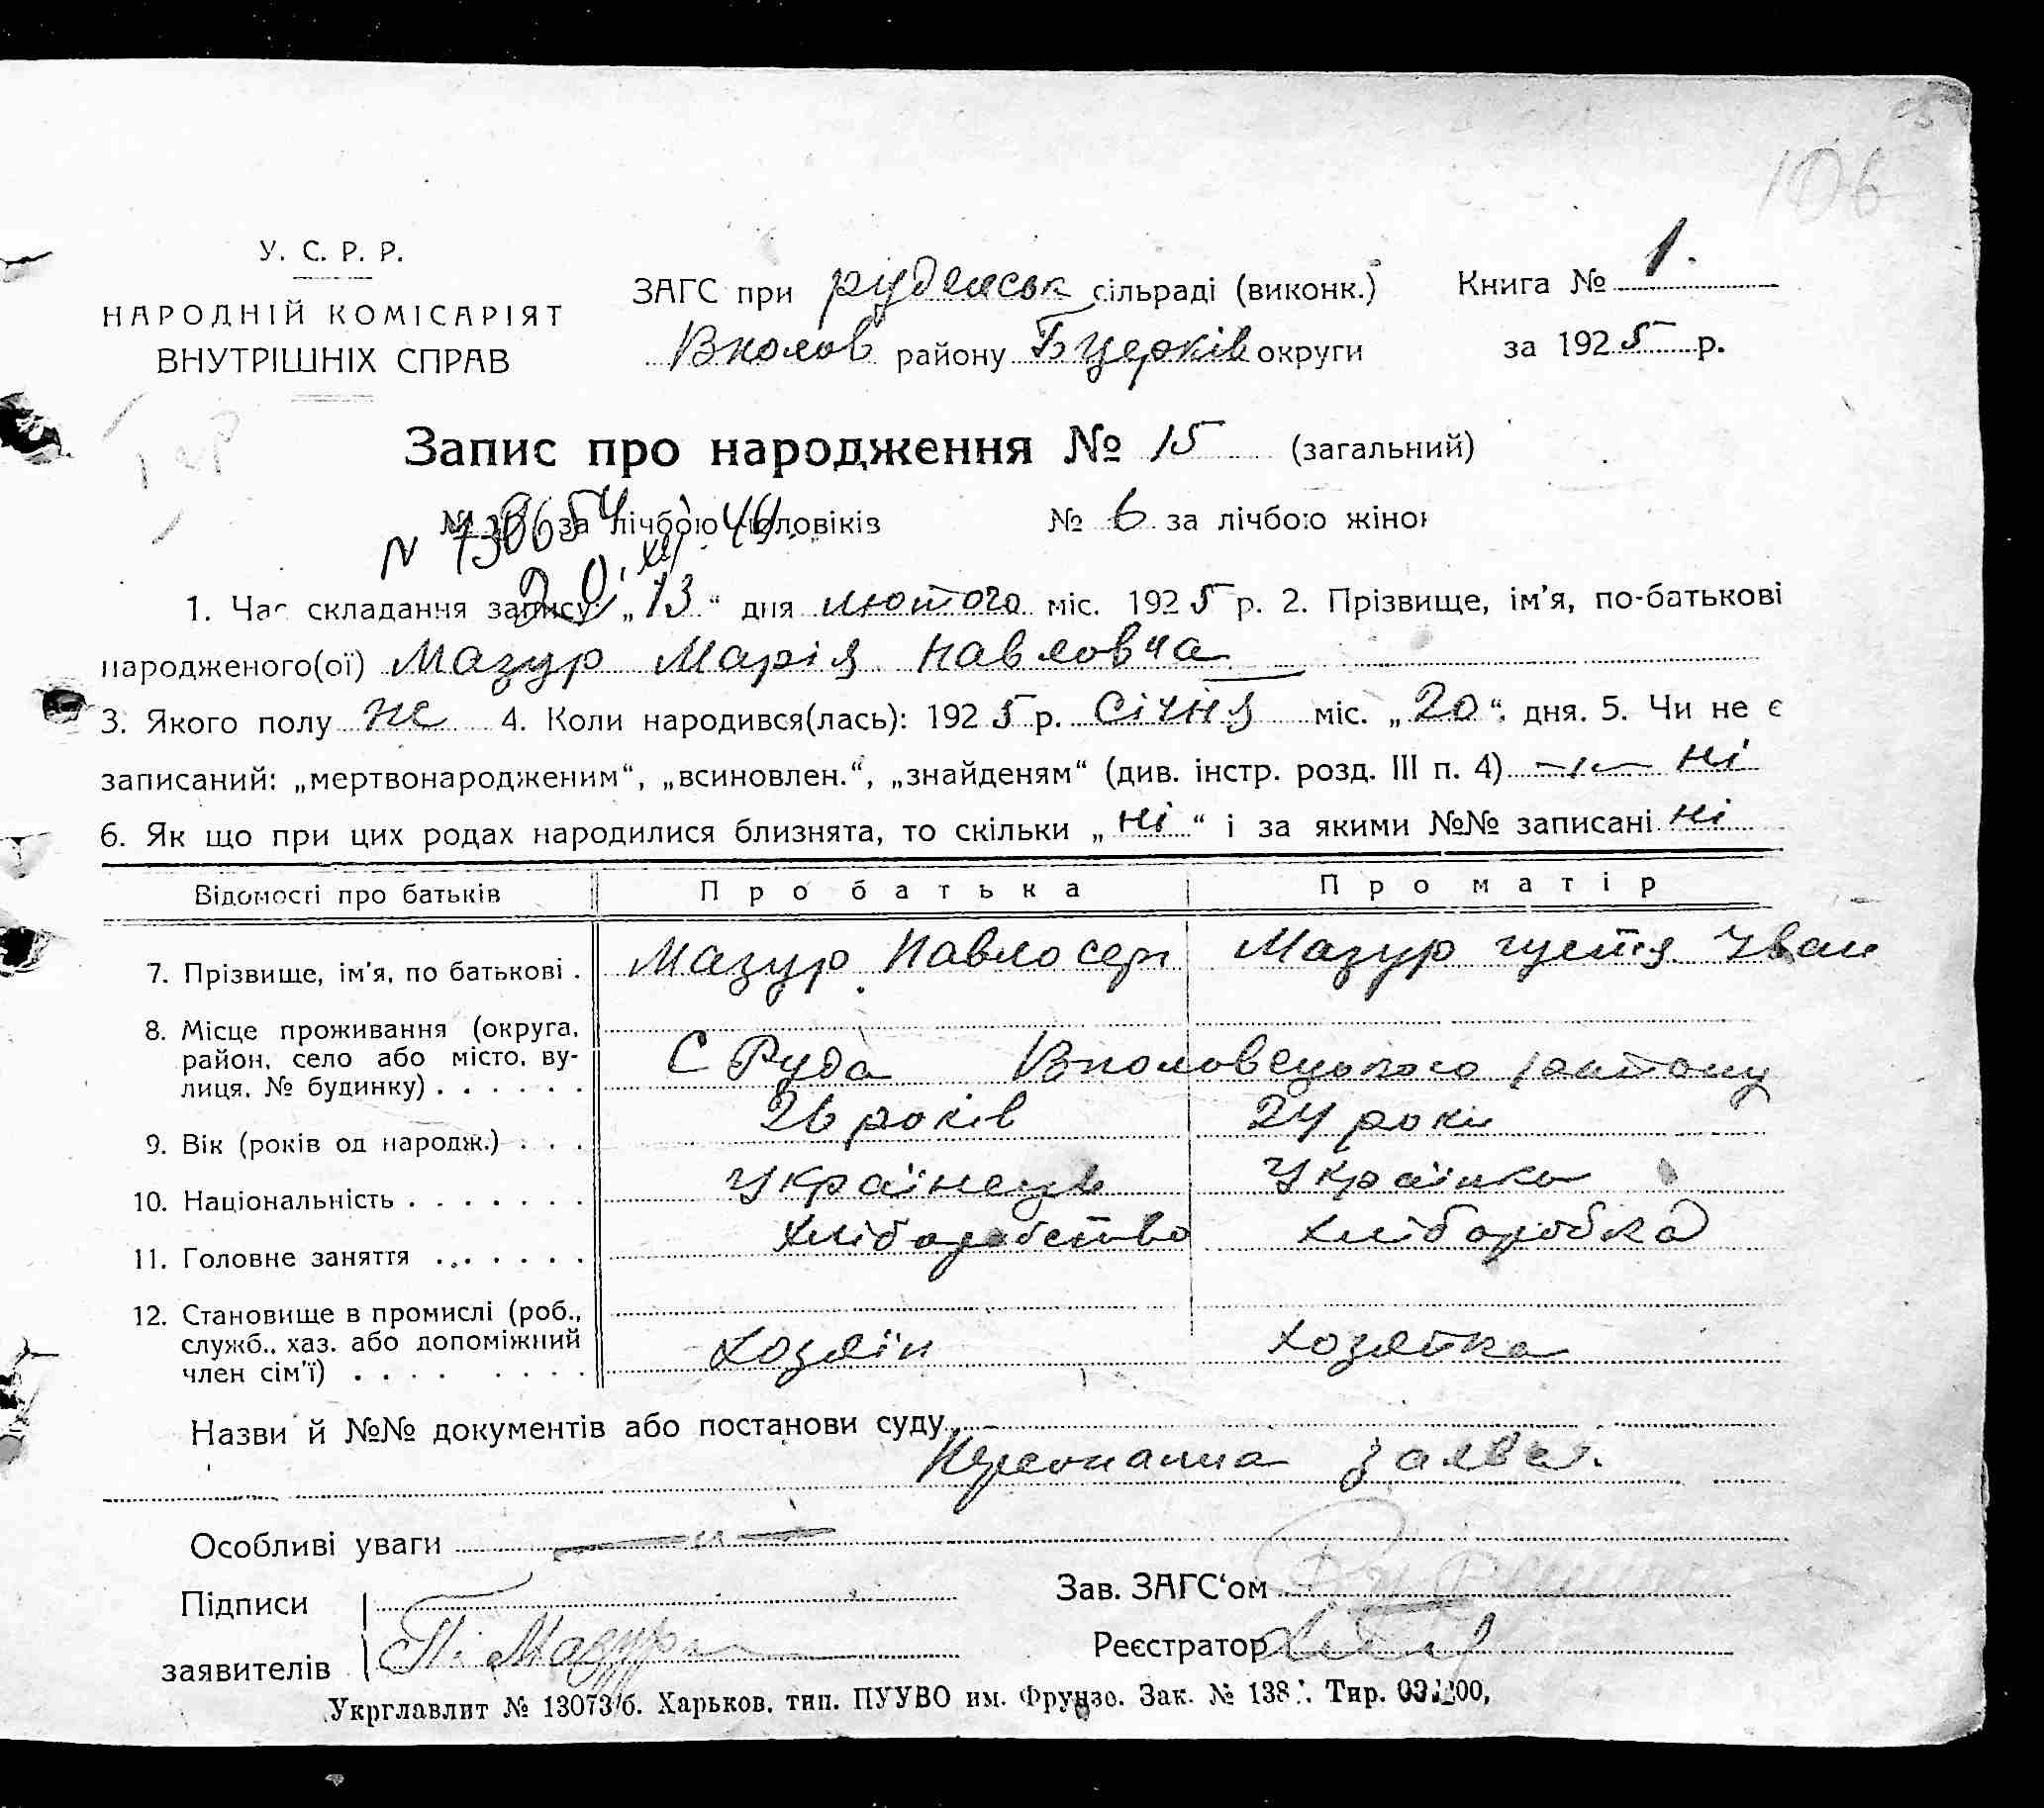 106
У. С. Р. Р.
НАРОДНІЙ КОМІСАРІЯТ
ВНУТРІШНІХ СПРАВ
ЗАГС при руденськ сільраді (виконк.)
Вполов району Бцерків округи
Книга № 1.
за 1925 р.
Запис про народження № 15 (загальний)
№ за лічбою чоловіків № 6 за лічбою жінок
N
1. Час складання запису: „13“ дня лютого міс. 1925 р. 2. Прізвище, ім'я, по-батькові
народженого(ої) Мазур Марія Павловна
3. Якого полу же 4. Коли народився(лась): 1925 р. Січня міс. „20“ дня. 5. Чи не є
записаний: „мертвонародженим“, „всиновлен.“, „знайденям“ (див. інстр. розд. III п. 4) ні
6. Як що при цих родах народилися близнята, то скільки „ні“ і за якими №№ записані ні
Відомості про батьків Про батька Про матір
7. Прізвище, ім'я, по батькові . Мазур Павло серг Мазур Устя Іван
8. Місце проживання (округа,
район, село або місто, ву-
лиця, № будинку) . . . . . . С Руда Вполовецького
9. Вік (років од народж.) . . . 26 років 24 роки
10. Національність . . . . . . . Українець Українка
11. Головне заняття . . . . . . . Хліборобство Хліборобка
12. Становище в промислі (роб.,
служб., хаз. або допоміжний
член сім'ї) . . . . . . . . Хозяїн Хозяйка
Назви й №№ документів або постанови суду
Персональна заява.
Особливі уваги — „ —
Підписи
заявителів П. Мазур
Зав. ЗАГС'ом
Реєстратор
Укрглавлит № 13073/б. Харьков, тип. ПУУВО им. Фрунзе. Зак. № 138 . Тир.